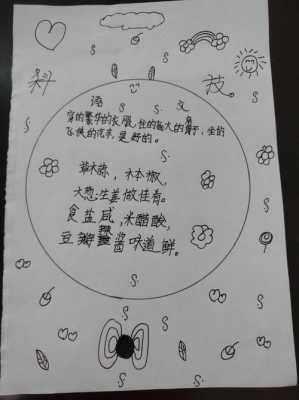 科 技
语 文
穿的繁华的衣服,住的高大的房子,坐的
飞快的汽车,是爸的。
草木棕,木本椒,
大葱生姜做佳肴。
食盐咸,米醋酸,
豆瓣辣酱味道鲜。